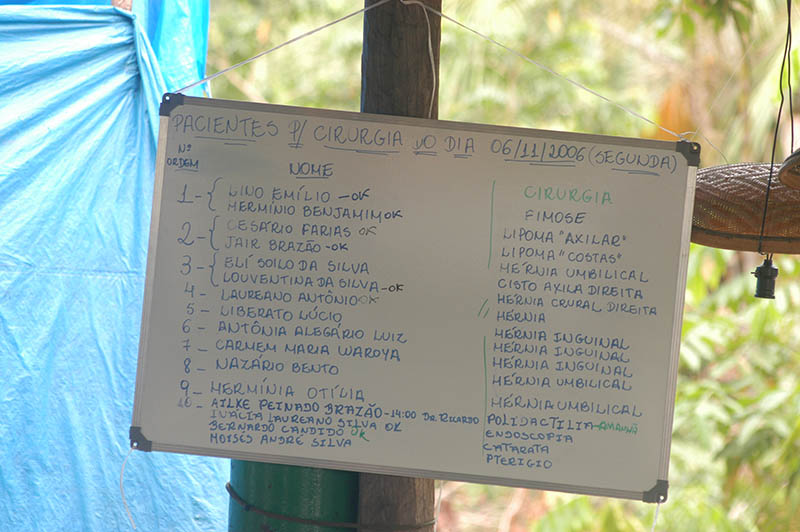 PACIENTES P/ CIRURGIA DO DIA 06/11/2006 (SEGUNDA)
Nº ORDEM
NOME
CIRURGIA
1 - { LINO EMÍLIO - OK
HERMÍNIO BENJAMIM OK
FIMOSE
2 - { CESÁRIO FARIAS OK
LIPOMA "AXILAR"
JAIR BRAZÃO - OK
LIPOMA "COSTAS"
3 - { ELÍ SOILO DA SILVA
HÉRNIA UMBILICAL
LOUVENTINA DA SILVA - OK
CISTO AXILA DIREITA
4 - LAUREANO ANTÔNIO OK
HÉRNIA CRURAL DIREITA
5 - LIBERATO LÚCIO
HÉRNIA
6 - ANTÔNIA ALEGÁRIO LUIZ
HÉRNIA INGUINAL
7 - CARMEM MARIA WAROYA
HÉRNIA INGUINAL
8 - NAZÁRIO BENTO
HÉRNIA INGUINAL
HÉRNIA UMBILICAL
9 - HERMÍNIA OTÍLIA
HÉRNIA UMBILICAL
10 - AILKE PEINADO BRAZÃO - 14:00 DR. RICARDO
POLIDACTILIA - AMANHÃ
INÁCIA LAUREANO SILVA OK
ENDOSCOPIA
BERNARDO CANDIDO OK
CATARATA
MOISES ANDRÉ SILVA
PTERIGIO